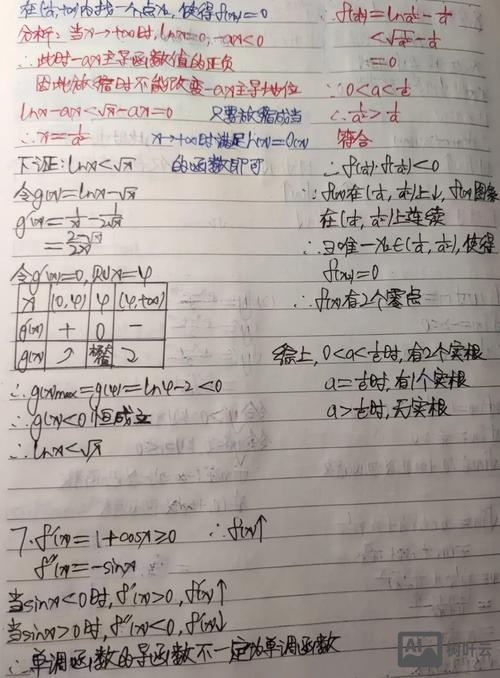 在(1/a,+∞)内找一个点x₂,使得f(x₂)=0
分析:当x→+∞时,lnx=0,-ax<0
∴此时-ax主导函数值的正负
因此放缩时不能改变-ax主导地位
lnx-ax<√x-ax=0 只要放缩成当
∴x=1/a² x→+∞时满足h(x)=o(x)
下证:lnx<√x 的函数即可
令g(x)=lnx-√x
g'(x)=1/x-1/2√x
=2-√x/2x
令g'(x)=0,则x=4
x (0,4) 4 (4,+∞)
g'(x) + 0 -
g(x) ↗ ↘
∴g(x)max=g(4)=ln4-2<0
∴g(x)<0恒成立
∴lnx<√x
∴f(1/a²)=ln1/a²-1/a
<√1/a²-1/a
=0
∵0<a<1/e
∴1/a²>1/a
符合
∴f(1/a)·f(1/a²)<0
∵f(x)在(1/a,1/a²)上↓,f(x)图象
在(1/a,1/a²)上连续
∴∃唯一x₂∈(1/a,1/a²),使得
f(x₂)=0
∴f(x)有2个零点
综上,0<a<1/e时,有2个实根
a=1/e时,有1个实根
a>1/e时,无实根
7.f'(x)=1+cosx≥0 ∴f(x)↑
f''(x)=-sinx
当sinx<0时,f''(x)>0,f'(x)↑
当sinx>0时,f''(x)<0,f'(x)↓
∴单调函数的导函数不一定为单调函数
AI 树叶云